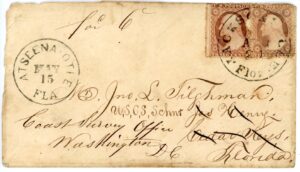 for C
ATSEENA OTIE
MAY
15
FLA
Jno. L. Tilghman,
U.S.C.S. Schnr Jos Henry,
Coast Survey Office
Cedar Keys,
Washington
D.C.
Florida